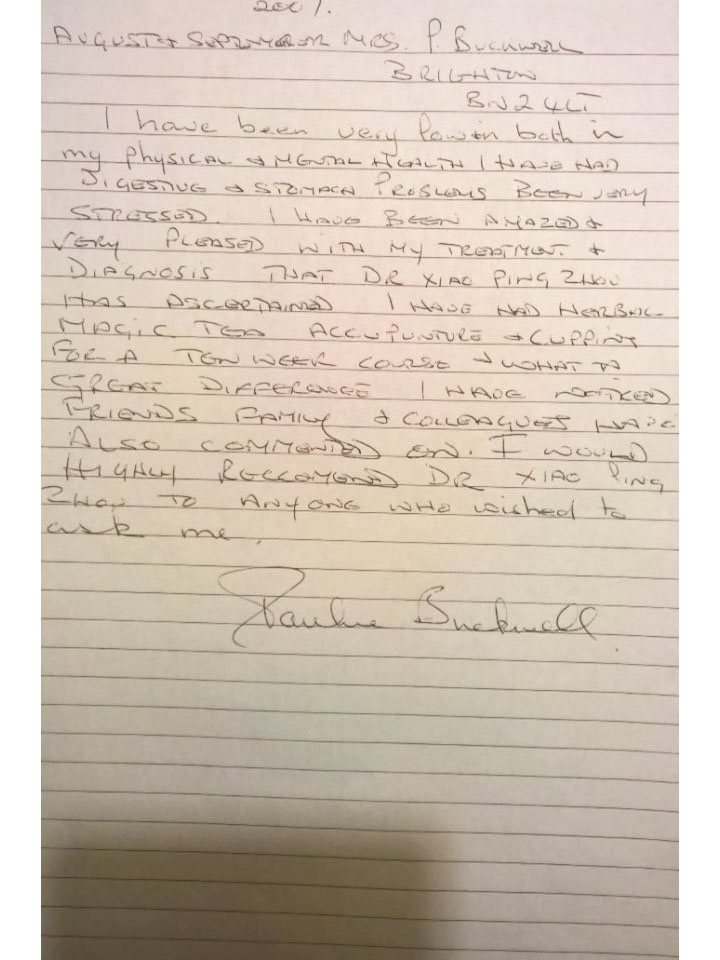 2007.
AUGUST & SEPTEMBER MRS. P. BUCKWELL
BRIGHTON
BN2 4LT
I have been very low in both in
my physical & MENTAL HEALTH I HAVE HAD
DIGESTIVE & STOMACH PROBLEMS BEEN VERY
STRESSED. I HAVE BEEN AMAZED &
VERY PLEASED WITH MY TREATMENT &
DIAGNOSIS THAT DR XIAO PING ZHOU
HAS ASCERTAINED I HAVE HAD HERBAL
MAGIC TEA ACCUPUNTURE & CUPPING
FOR A TEN WEEK COURSE & WHAT A
GREAT DIFFERENCE I HAVE NOTICED
FRIENDS FAMILY & COLLEAGUES HAVE
ALSO COMMENTED ON. I WOULD
HIGHLY RECCOMEND DR XIAO PING
ZHOU TO ANYONE WHO wished to
ask me.
Pauline Buckwell